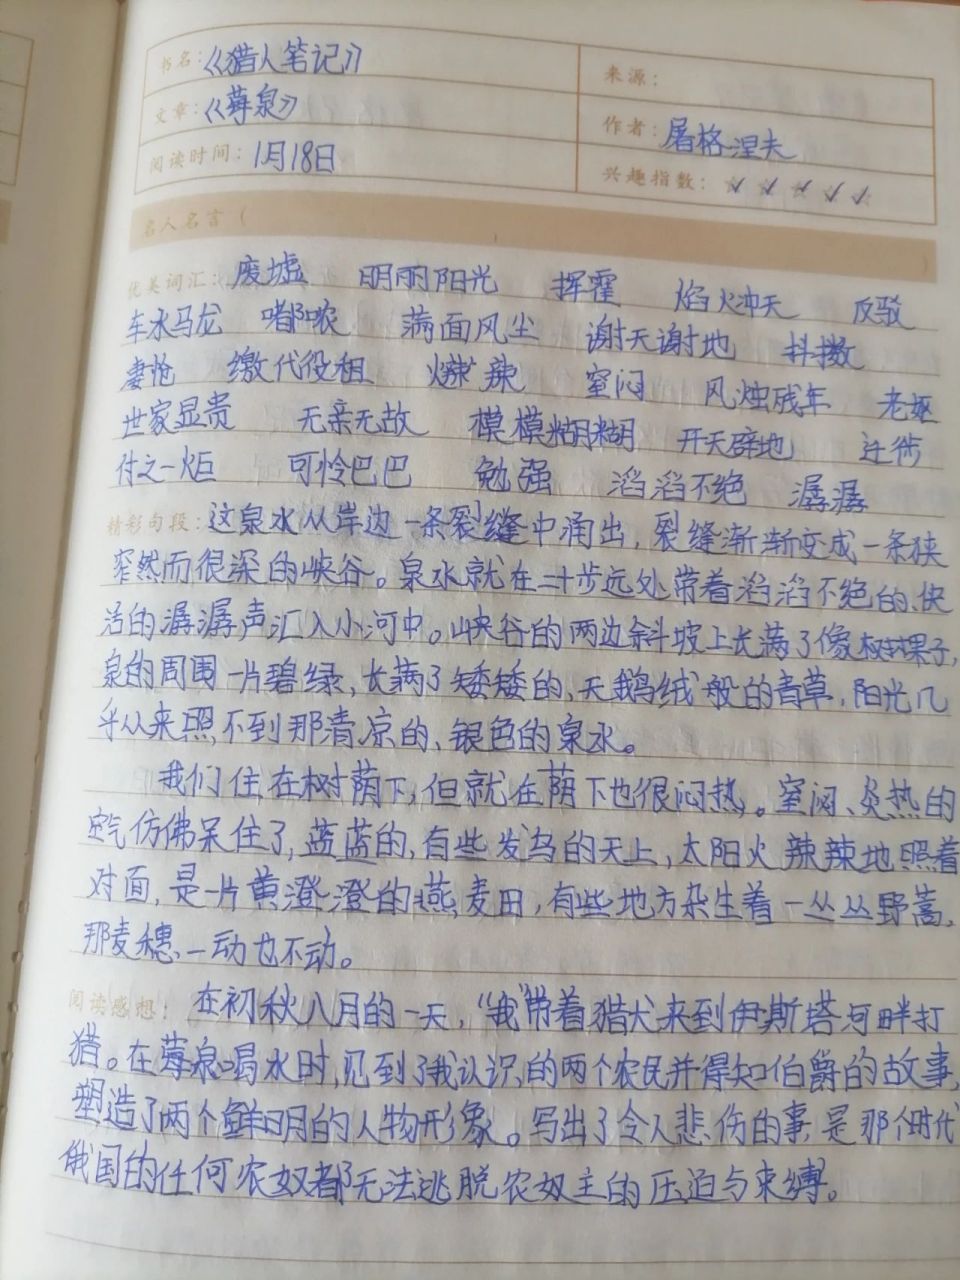 书名：《猎人笔记》
来源：
文章：《莓泉》
作者：屠格涅夫
阅读时间：1月18日
兴趣指数：☆☆☆☆☆
名人名言（ ）
优美词汇：废墟 明丽阳光 挥霍 焰火冲天 反驳
车水马龙 嘟哝 满面风尘 谢天谢地 抖擞
凄怆 缴代役租 火辣辣 窒闷 风烛残年 老妪
世家显贵 无亲无故 模模糊糊 开天辟地 迁徙
付之一炬 可怜巴巴 勉强 滔滔不绝 潺潺
精彩句段：这泉水从岸边一条裂缝中涌出，裂缝渐渐变成一条狭
窄然而很深的峡谷。泉水就在二十步远处带着滔滔不绝的、快
活的潺潺声汇入小河中。峡谷的两边斜坡上长满了像树果子，
泉的周围一片碧绿，长满了矮矮的、天鹅绒般的青草，阳光几
乎从来照不到那清凉的、银色的泉水。
我们住在树荫下，但就在荫下也很闷热，。窒闷、炎热的
空气仿佛呆住了，蓝蓝的，有些发乌的天上，太阳火辣辣地照着
对面，是一片黄澄澄的燕麦田，有些地方杂生着一丛丛野蒿，
那麦穗、一动也不动。
阅读感想：在初秋八月的一天，“我”带着猎犬来到伊斯塔河畔打
猎。在莓泉喝水时，见到了我认识的两个农民并得知伯爵的故事，
塑造了两个鲜明的人物形象。写出了令人悲伤的事，是那个时代
俄国的任何农奴都无法逃脱农奴主的压迫与束缚。